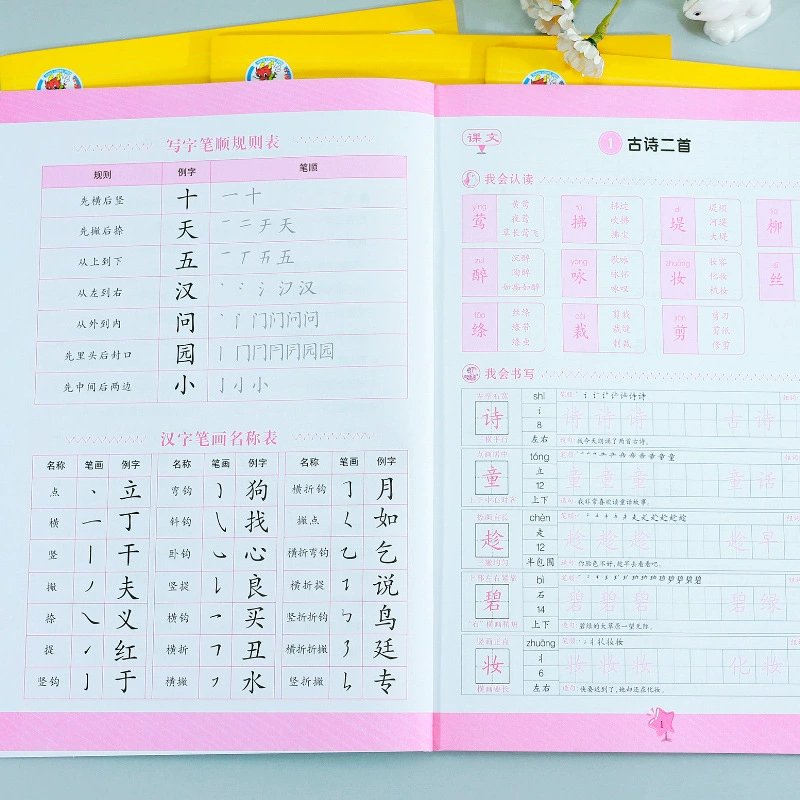 写字笔顺规则表
规则 例字 笔顺
先横后竖 十 一十
先撇后捺 天 一二于天
从上到下 五
从左到右 汉
从外到内 问
先里头后封口 园
先中间后两边 小
汉字笔画名称表
名称 笔画 例字 名称 笔画 例字 名称 笔画 例字
点 丶 立 弯钩 ㇁ 狗 横折钩 ㇆ 月
横 一 丁 斜钩 ㇂ 找 撇点 ㇛ 如
竖 丨 干 卧钩 ㇃ 心 横折弯钩 ㇈ 乞
撇 丿 夫 竖提 ㇙ 良 横折提 ㇊ 说
捺 ㇏ 义 横钩 ㇖ 买 竖折折钩 ㇉ 鸟
提 ㇀ 红 横折 ㇕ 丑 横折折撇 ㇋ 廷
竖钩 亅 于 横撇 ㇇ 水 竖折撇 ㇞ 专
课文
1 古诗二首
我会认读
yīng 莺 黄莺 夜莺 草长莺飞
fú 拂 拂过 吹拂 拂尘
dī 堤 堤坝 河堤 大堤
柳
zuì 醉 沉醉 陶醉 如痴如醉
yǒng 咏 歌咏 咏怀 咏叹
zhuāng 妆 梳妆 化妆 妆
sī 丝
tāo 绦 丝绦 绦带 绦虫
cái 裁 剪裁 裁缝 裁
jiǎn 剪 剪刀 剪纸 修剪
我会书写
诗 shī 讠 8 左右
诗 诗 诗 古 诗
造句:我今天朗诵了两首古诗。
童 tóng 立 12 上下
童 童 童 童 话
造句:我非常喜欢读童话故事。
趁 chèn 走 12 半包围
趁 趁 趁 趁 早
造句:你脸色不好,趁早去看看吧。
碧 bì 石 14 上下
碧 碧 碧 碧 绿
造句:碧绿的大草原一望无际。
妆 zhuāng 丬 6 左右
妆 妆 妆 化 妆
造句:快要迟到了,她却还在化妆。
1